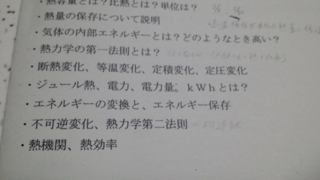 ・熱容量とは？比熱とは？単位は？
・熱量の保存について説明
・気体の内部エネルギーとは？どのようなとき高い？
・熱力学の第一法則とは？
・断熱変化、等温変化、定積変化、定圧変化
・ジュール熱、電力、電力量。ｋＷｈとは？
・エネルギーの変換と、エネルギー保存
・不可逆変化、熱力学第二法則
・熱機関、熱効率